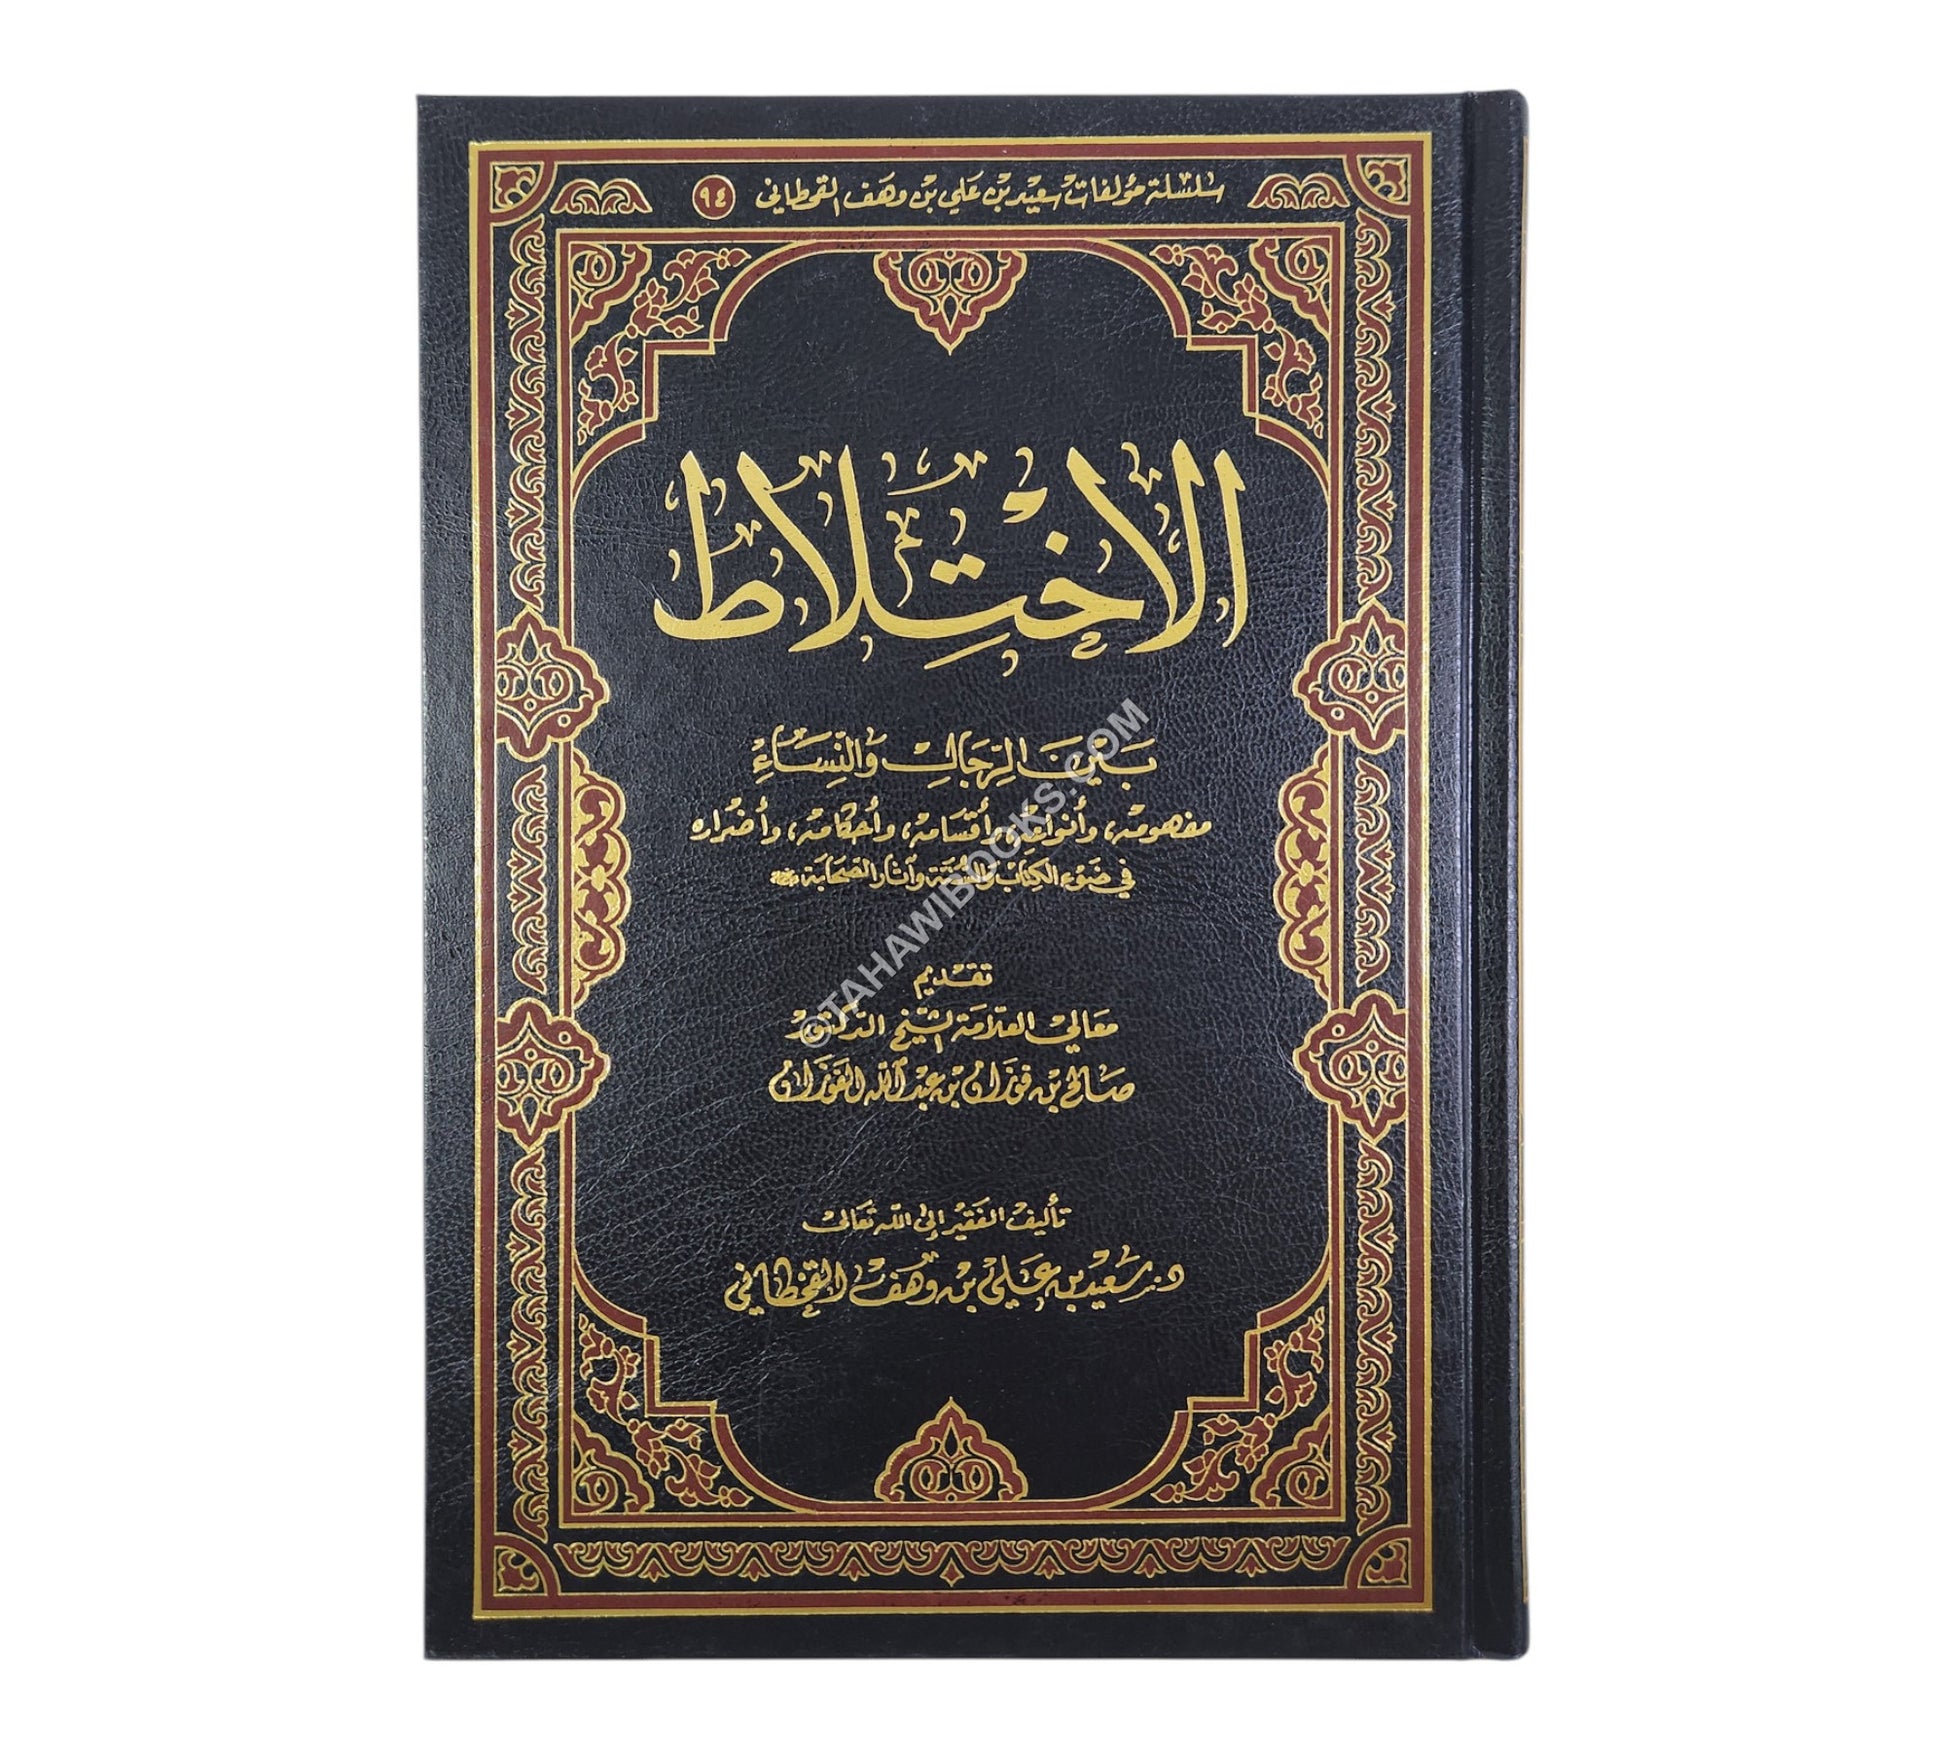 سلسلة مؤلفات سعيد بن علي بن وهف القحطاني ٩٤
الاخْتِلَاط
بَيْنَ الرِّجَالِ وَالنِّسَاءِ
مفهومه، وأنواعه، وأقسامه، وأحكامه، وأضراره
في ضَوْءِ الكِتَابِ وَالسُّنَّةِ وَآثَارِ الصَّحَابَة رضي الله عنهم
تقديم
معالي العلامة الشيخ الدكتور
صالح بن فوزان بن عبد الله الفوزان
تأليف الفقير إلى الله تعالى
د. سعيد بن علي بن وهف القحطاني
©TAHAWIBOOKS.COM